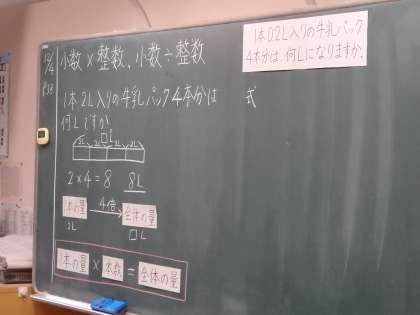 12/4
P38
小数×整数、小数÷整数
1本0.2L入りの牛乳パック
4本分は、何Lになりますか。
1本2L入りの牛乳パック4本分は
何Lですか
式
□L
2L 2L 2L 2L
2×4=8 8L
1本の量 4倍 全体の量
2L □L
1本の量 × 本数 = 全体の量